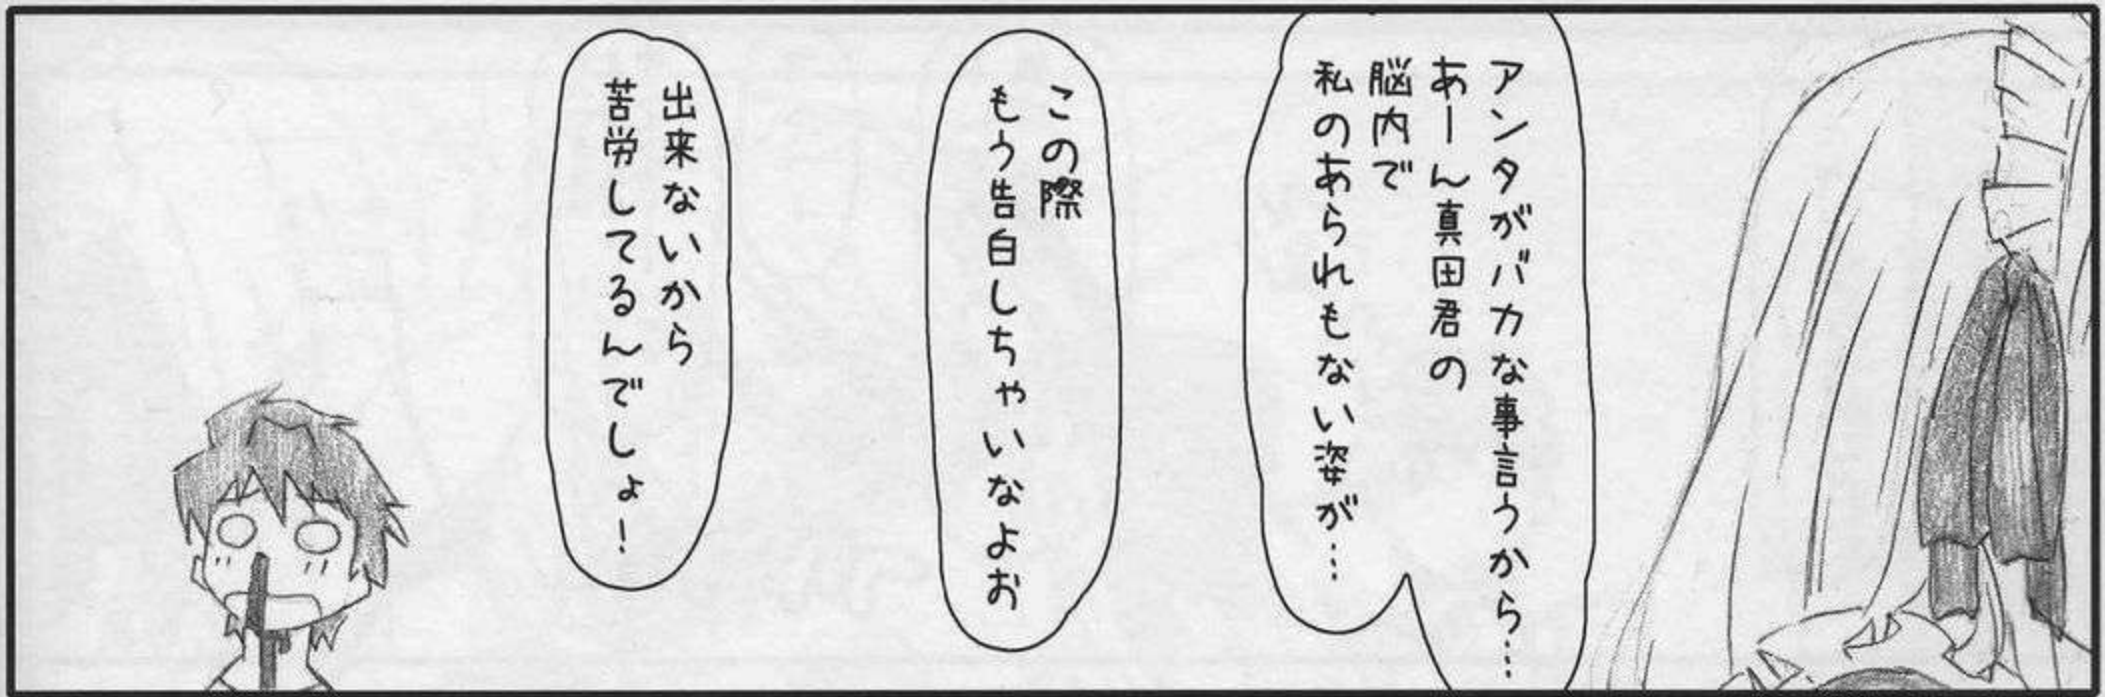 アンタがバカな事言うから……
あーん真田君の
脳内で
私のあられもない姿が……
この際
もう告白しちゃいなよお
出来ないから
苦労してるんでしょ!